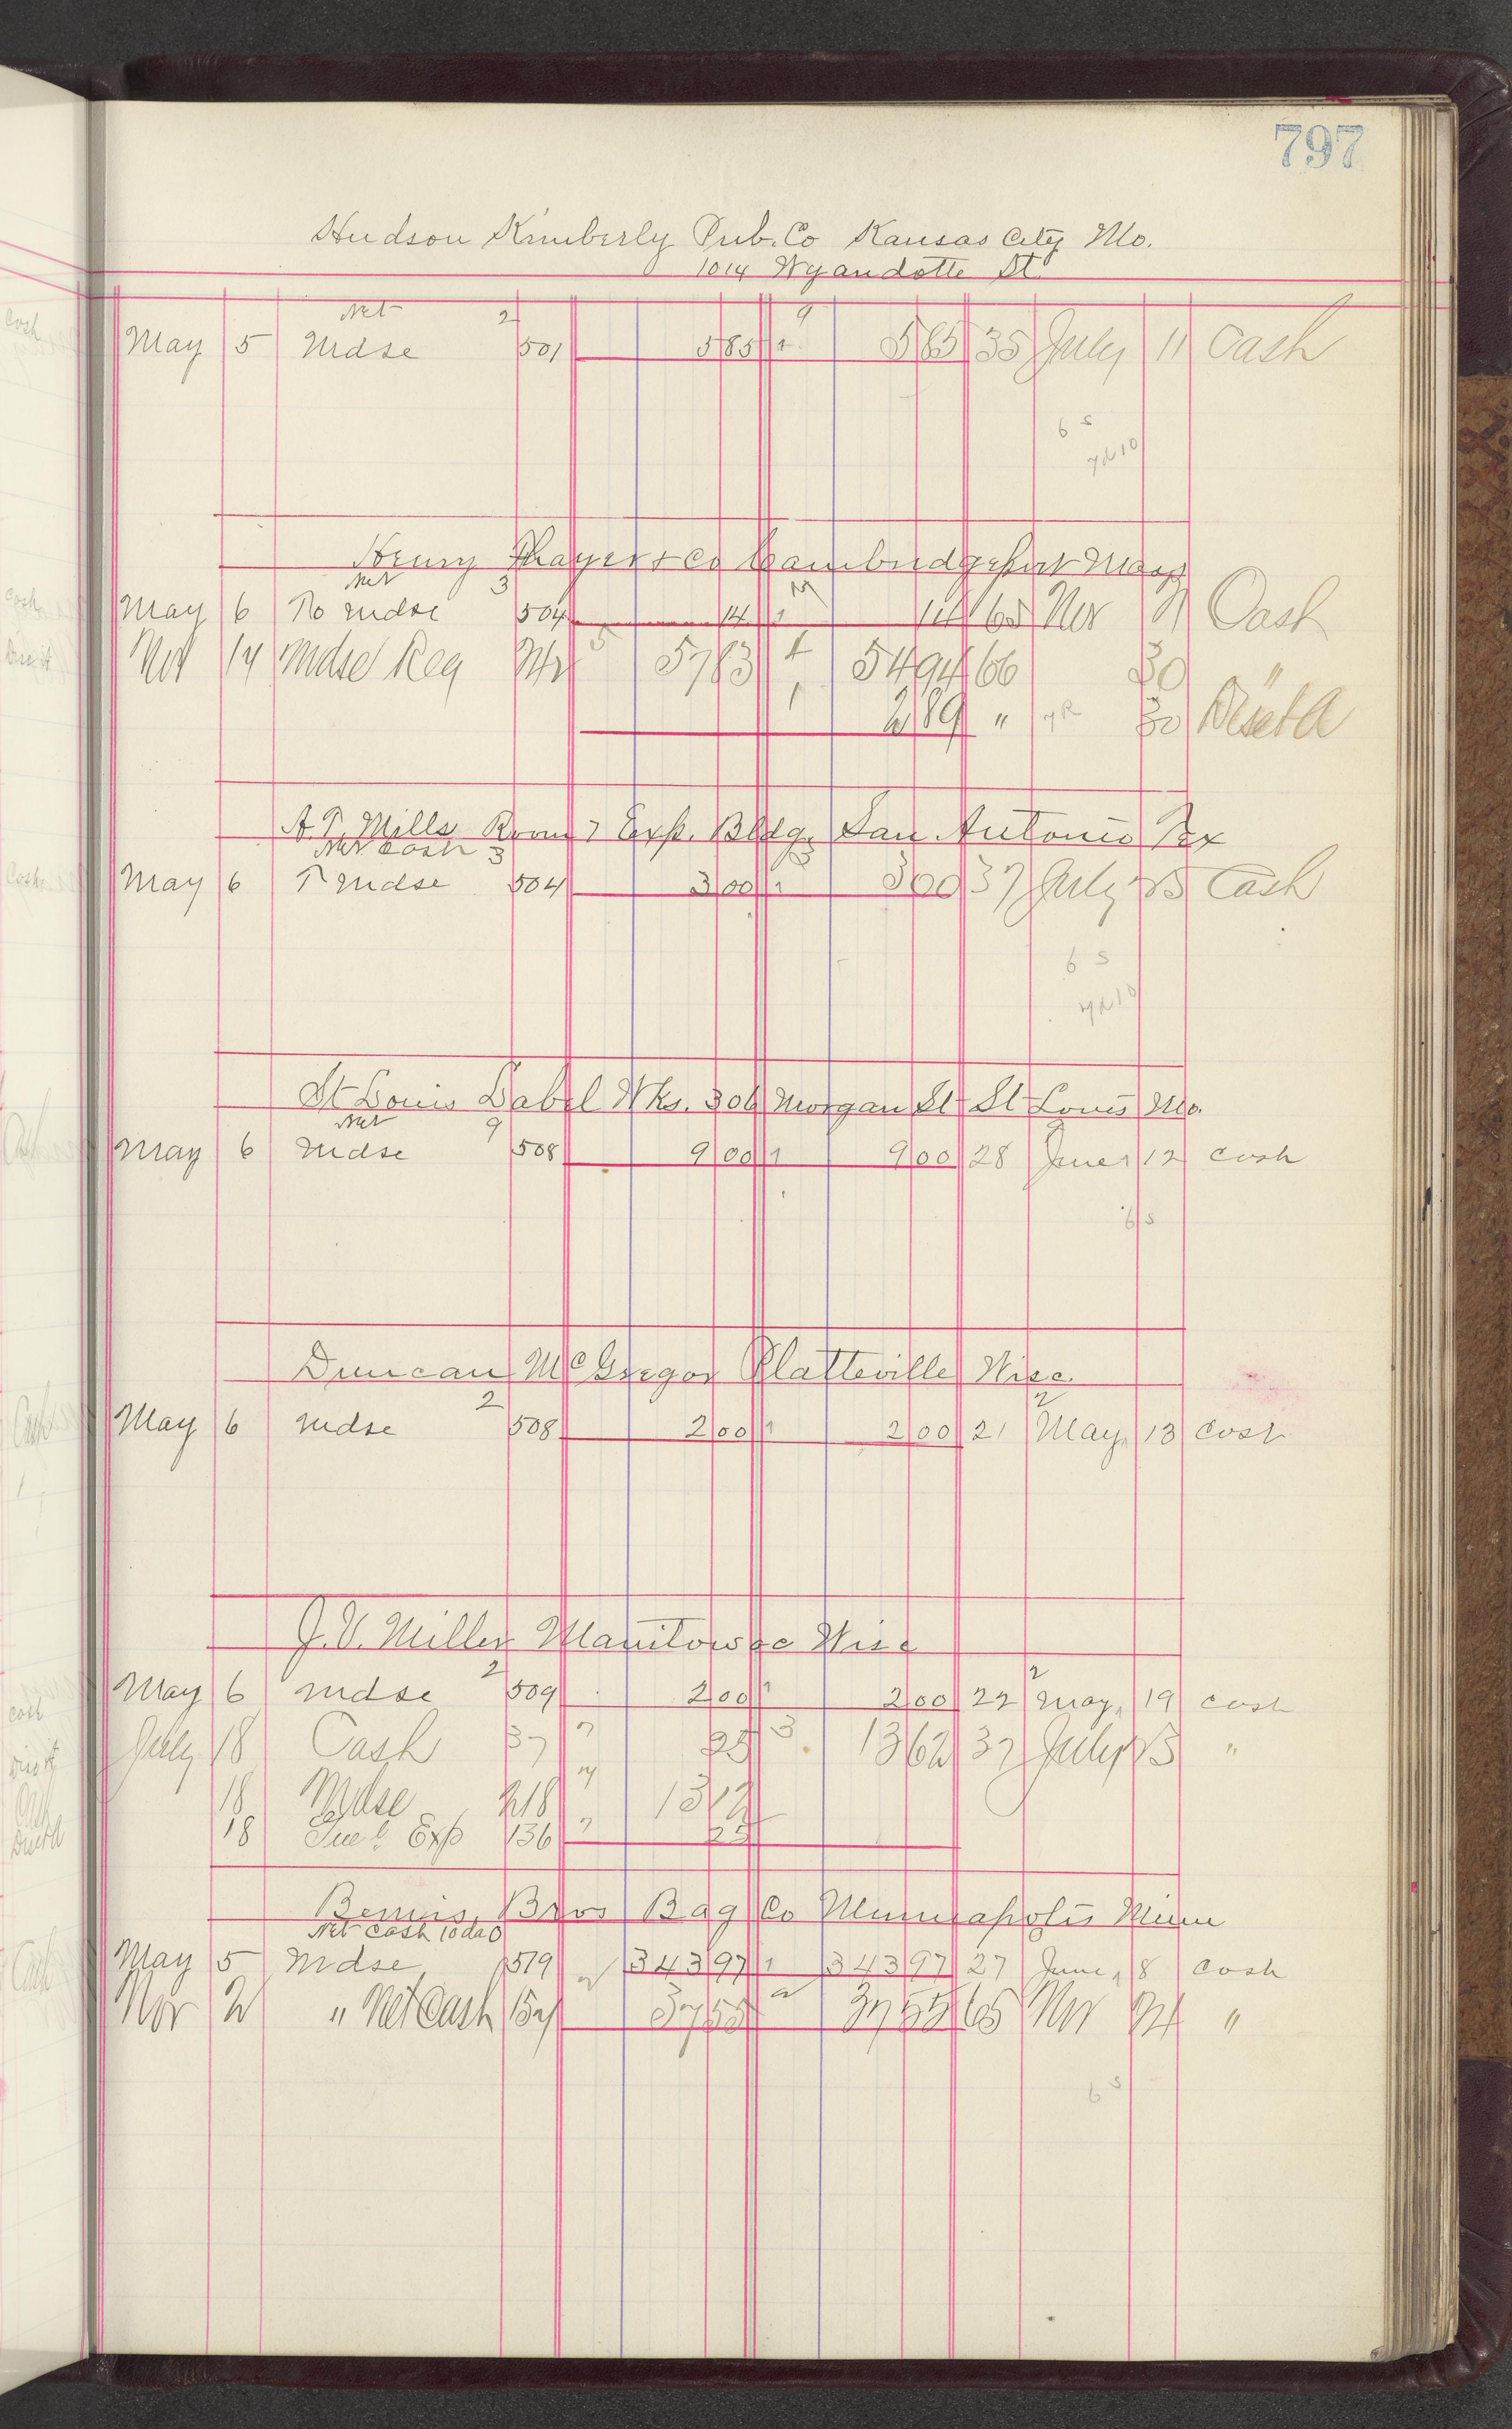 797
Hudson Kimberly Pub. Co Kansas City Mo.
1014 Wyandotte St.
Net 2 9
May 5 Mdse 501 5 85 1 5 85 35 July 11 Cash
6 s
Henry Thayer & Co Cambridgeport Mass
Net 3
May 6 To mdse 504 14 1 14 65 Nov Cash
Nov 14 Mdse Reg 57 83 54 94 66 30 "
1 2 89 " 30
A. T. Mills Room 7 Exp. Bldg. San Antonio Tex
Net Cash 3 3
May 6 T mdse 504 3 00 1 3 00 37 July 25 Cash
6 s
St Louis Label Wks. 306 Morgan St St Louis Mo.
Net 9 9
May 6 Mdse 508 9 00 1 9 00 28 June 12 Cash
6 s
Duncan McGregor Platteville Wisc.
2 2
May 6 Mdse 508 2 00 1 2 00 21 May 13 Cash
J. V. Miller Manitowoc Wisc
2 2
May 6 mdse 509 2 00 1 2 00 22 May 19 Cash
July 18 Cash 37 7 25 3 13 62 37 July 25 "
18 Mdse 218 13 12
18 Exp 136 25
Bemis Bros Bag Co Minneapolis Minn
Net Cash 10 da
May 5 Mdse 519 343 97 1 343 97 27 June 8 Cash
Nov 2 " Net Cash 37 55 37 55 65 Nov "
6 s